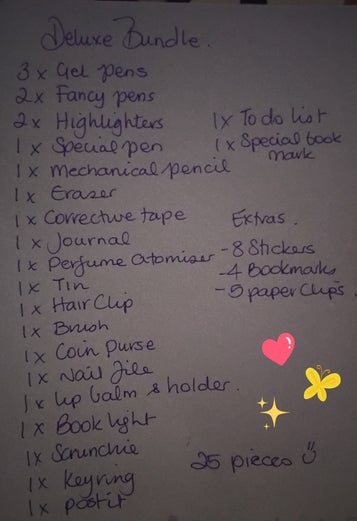 Deluxe Bundle.
3 x Gel pens
2 x Fancy pens
2 x Highlighters
1 x Special pen
1 x Mechanical pencil
1 x Eraser
1 x Corrective tape
1 x Journal
1 x Perfume atomiser
1 x Tin
1 x Hair Clip
1 x Brush
1 x Coin Purse
1 x Nail file
1 x lip balm & holder.
1 x Book light
1 x Scrunchie
1 x Keyring
1 x postit
1 x To do list
1 x Special book
mark
Extras.
- 8 Stickers
- 4 Bookmarks
- 5 paper Clips.
25 pieces